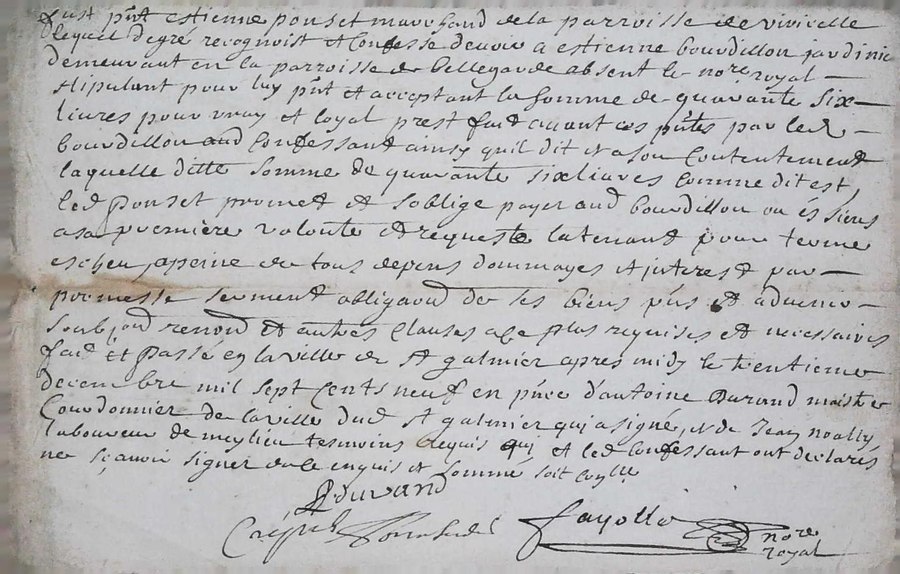 fust pnt estienne ponset marchand de la parroisse de vivicelle
lequel de gré recognoist et confesse devoir a estienne bourdillon jardinie
demeurant en la parroisse de bellegarde absent le nore royal
stipulant pour luy pnt et acceptant la somme de quarante six
livres pour vray et loyal prest fait avant ces pntes par led
bourdillon aud confessant ainsy quil dit et a son contentement
laquelle ditte somme de quarante six livres comme dit est,
led ponset promet et soblige payer aud bourdillon ou és siens
a sa premiere volonte et requeste la tenant pour terme
escheu, apeine de tous depens dommages et interest par
promesse serment obligaon de ses biens pns et advenir
soubz renon et autres clauses a ce plus requises et necessaires
fait et passé en la ville de st galmier apres midy le trentieme
decembre mil sept cents neuf en pnce d'antoine Durand maistre
Courdonnier de la ville dud st galmier qui a signé, et de Jean noally
laboureur de meylieu tesmoins requis qui et led confessant ont declarés
ne scavoir signer de ce enquis et sommé soit
Durand
fayolle
nore
royal